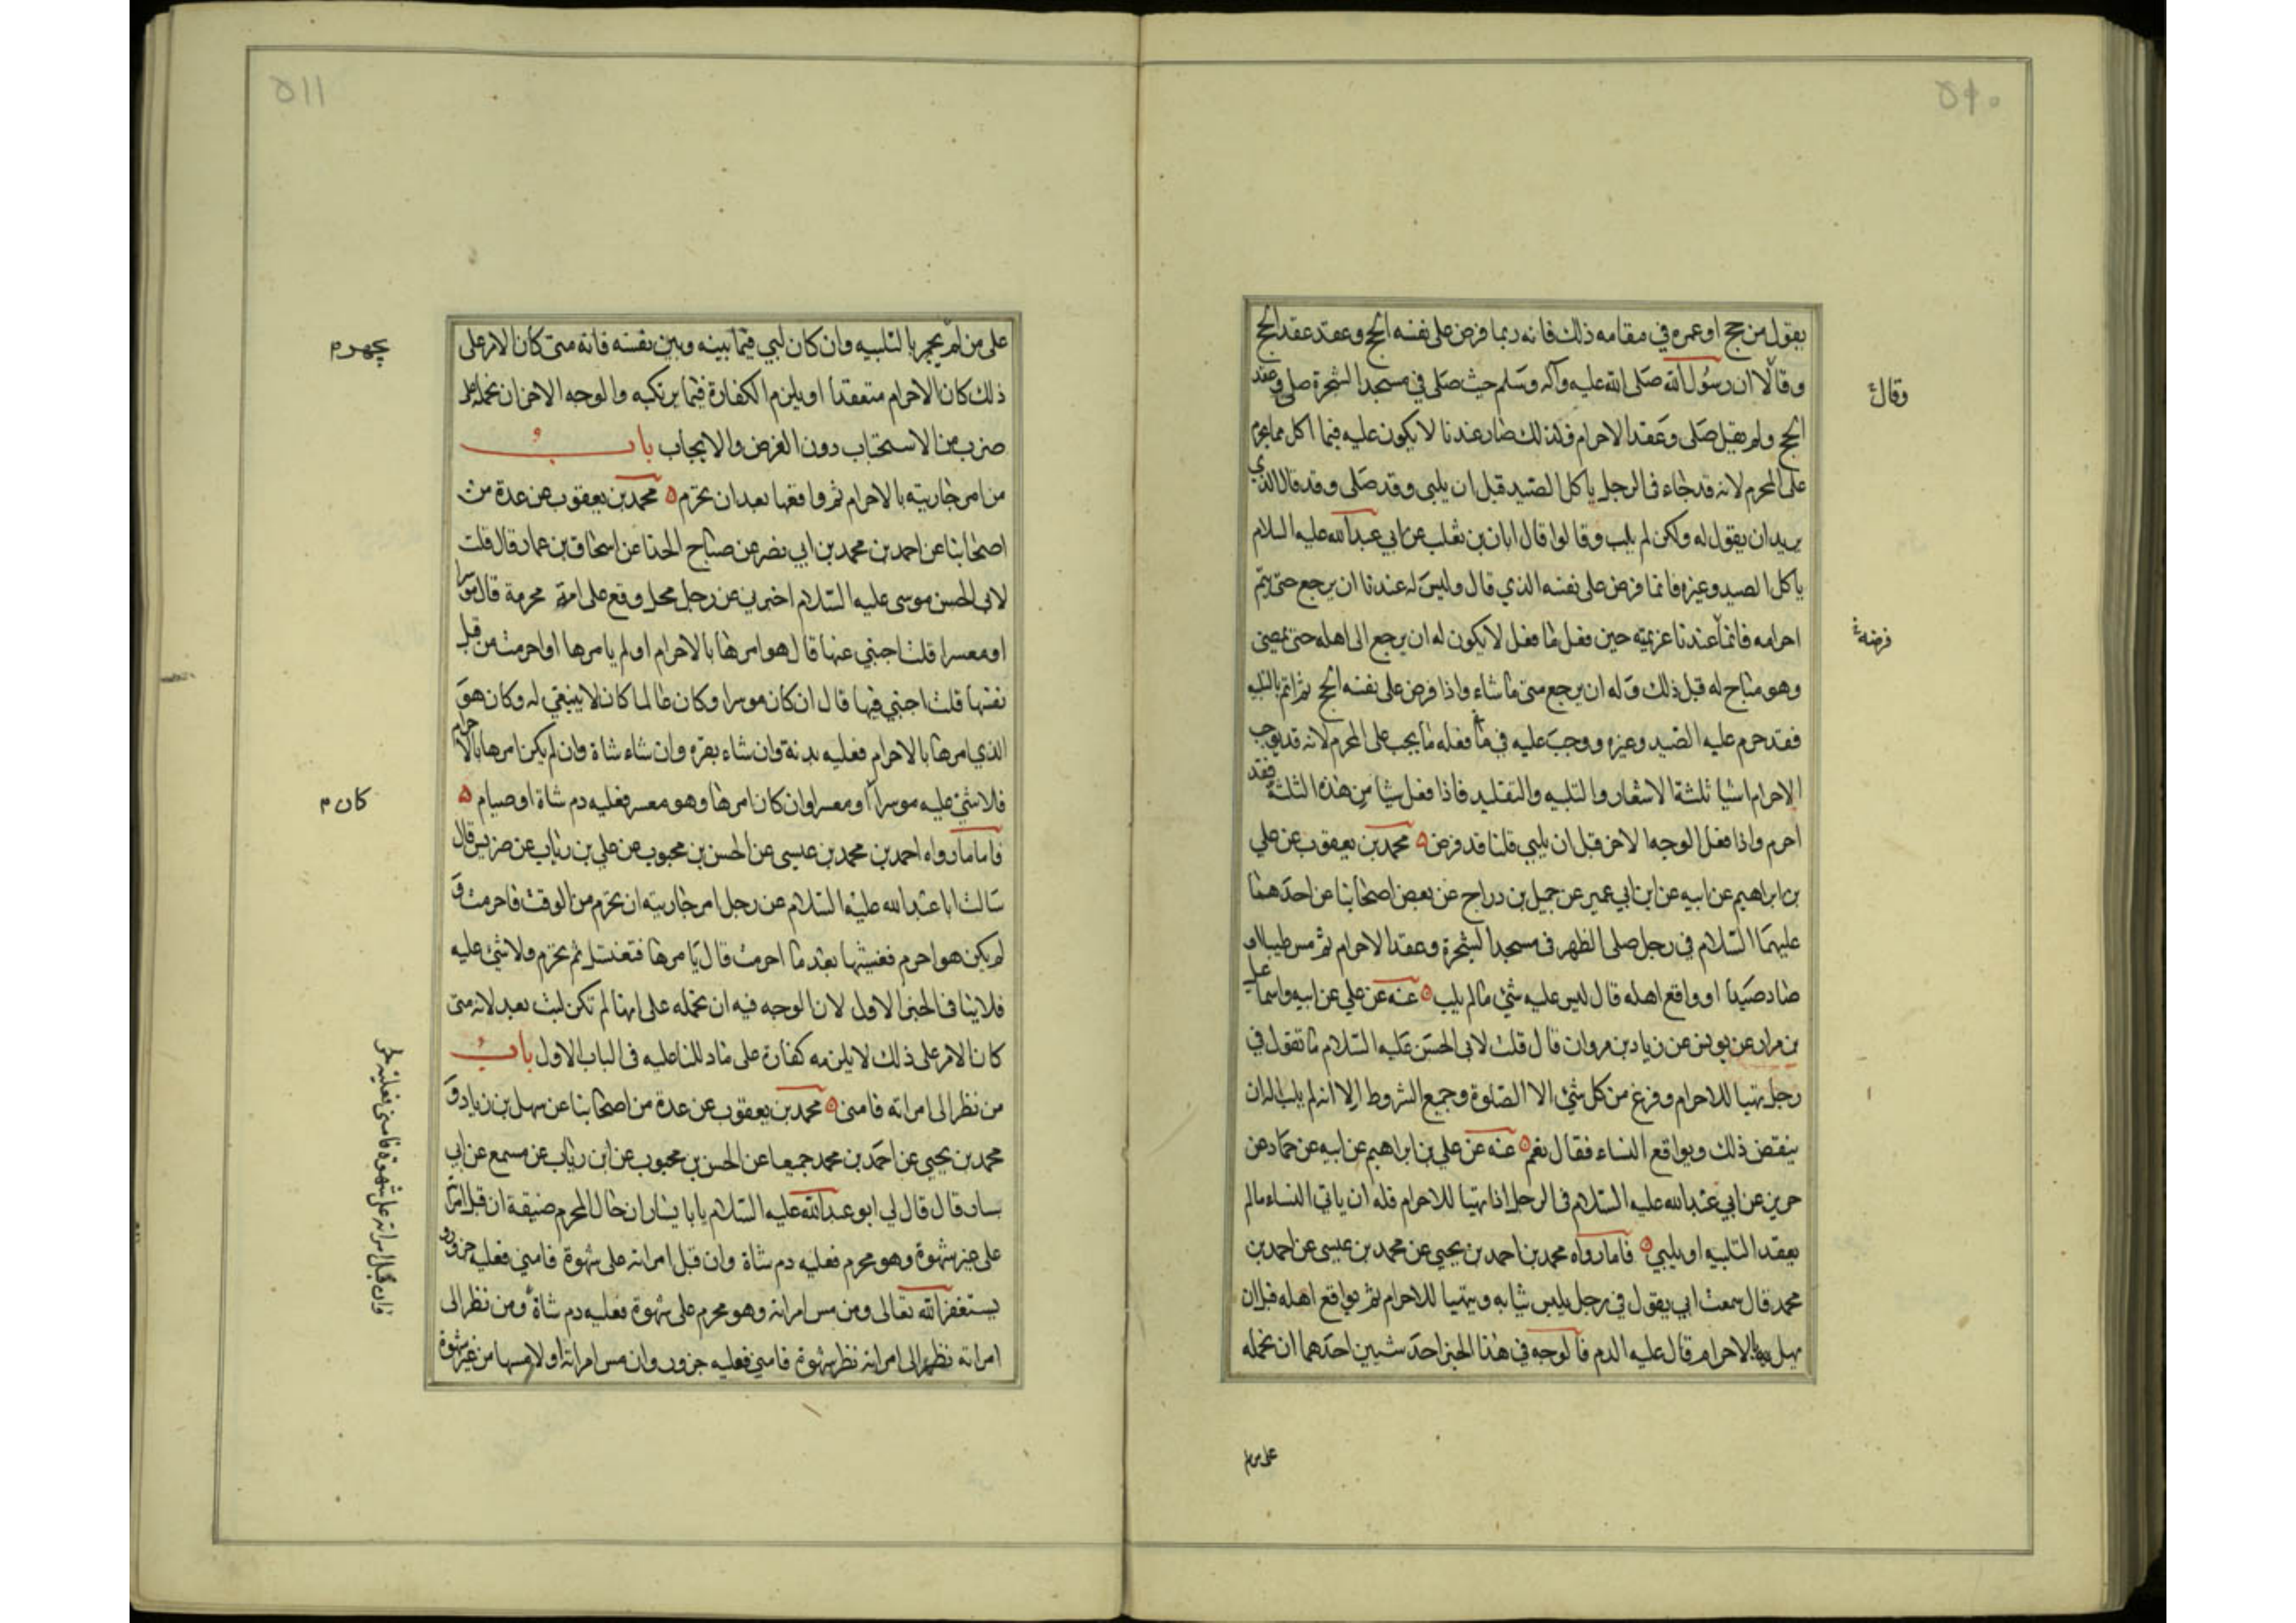 ٥١٠
يقول من حج او عمرة في مقامه ذلك فانه ربما فرض على نفسه الحج وعقد عقد الحج
وقالا ان رسول الله صلى الله عليه وآله وسلم حيث صلى في مسجد الشجرة صلى وعقد
وقال
الحج ولم يقل صلى وعقد الاحرام فلذلك صار عندنا لا يكون عليه فيما اكل مما يحرم
على المحرم لانه قد جاء في الرجل ياكل الصيد قبل ان يلبى وقد صلى وقد قال الذي
يريد ان يقول له ولكن لم يلب وقالوا قال ابان بن تغلب عن ابي عبد الله عليه السلام
ياكل الصيد وغيره فانما فرض على نفسه الذي قال وليس له عندنا ان يرجع حتى يتم
احرامه فانما عندنا عزيمته حين فعل ما فعل لا يكون له ان يرجع الى اهله حتى يمضى
فرضه
وهو مباح له قبل ذلك وله ان يرجع متى ما شاء واذا فرض على نفسه الحج ثم اتم بالتلبيه
فقد حرم عليه الصيد وغيره ووجب عليه في ما فعله ما يجب على المحرم لانه قد يوجب
الاحرام اشيا ثلثة الاشعار والتلبيه والتقليد فاذا فعل شيا من هذه الثلثة فقد
احرم واذا فعل الوجه الاخر قبل ان يلبي قلنا قد فرض ه محمد بن يعقوب عن علي
بن ابراهيم عن ابيه عن ابن ابي عمير عن جميل بن دراج عن بعض اصحابنا عن احدهما
عليهما السلام في رجل صلى الظهر في مسجد الشجرة وعقد الاحرام ثم مس طيبا او
صاد صيدا او واقع اهله قال ليس عليه شئ ما لم يلب ه عنه عن علي عن ابيه واسماعيل
بن مرار عن يونس عن زياد بن مروان قال قلت لابى الحسن عليه السلام ما تقول في
رجل تهيا للاحرام وفرغ من كل شئ الا الصلوة وجميع الشروط الا انه لم يلب اله ان
ينقض ذلك ويواقع النساء فقال نعم ه عنه عن علي بن ابراهيم عن ابيه عن حماد عن
حريز عن ابي عبد الله عليه السلام في الرجل اذا تهيا للاحرام فله ان ياتي النساء ما لم
يعقد التلبيه او يلبي ه فاما رواه محمد بن احمد بن يحيى عن محمد بن عيسى عن احمد بن
محمد قال سمعت ابي يقول في رجل يلبس ثيابه ويتهيا للاحرام ثم يواقع اهله قبل ان
يهل بالاحرام قال عليه الدم فالوجه في هذا الخبر احد شيئين احدهما ان نحمله
على من لم
٥١١
على من لم يجهر بالتلبيه وان كان لبي فيما بينه وبين نفسه فانه متى كان الامر على
يجهر م
ذلك كان الاحرام منعقدا ويلزم الكفارة فيما يرتكبه والوجه الاخر ان نحمله على
ضرب من الاستحباب دون الفرض والايجاب باب
من امر جاريته بالاحرام ثم واقعها بعد ان تحرم ه محمد بن يعقوب عن عدة من
اصحابنا عن احمد بن محمد بن ابي نصر عن صباح الحذا عن اسحاق بن عمار قال قلت
لابى الحسن موسى عليه السلام اخبرني عن رجل محل وقع على امة محرمة قال موسرا
او معسرا قلت اجبني عنها قال هو امرها بالاحرام او لم يامرها او احرمت من قبل
نفسها قلت اجبني فيها قال ان كان موسرا وكان عالما كان لا ينبغي له وكان هو
الذي امرها بالاحرام فعليه بدنة وان شاء بقرة وان شاء شاة وان لم يكن امرها بالاحرام
فلا شئ عليه موسرا او معسرا وان كان امرها وهو معسر فعليه دم شاة او صيام ه
كان م
فاما ما رواه احمد بن محمد بن عيسى عن الحسن بن محبوب عن علي بن رئاب عن ضريس قال
سالت ابا عبد الله عليه السلام عن رجل امر جاريته ان تحرم من الوقت فاحرمت و
لم يكن هو احرم فغشيها بعد ما احرمت قال يامرها فتغتسل ثم تحرم ولا شئ عليه
فلا ينافى الخبر الاول لان الوجه فيه ان نحمله على انها لم تكن لبت بعد لانه متى
كان الامر على ذلك لا يلزمه كفارة على ما دللنا عليه في الباب الاول باب
من نظر الى امراته فامنى ه محمد بن يعقوب عن عدة من اصحابنا عن سهل بن زياد و
محمد بن يحيى عن احمد بن محمد جميعا عن الحسن بن محبوب عن ابن رئاب عن مسمع عن ابي
سيار قال قال لي ابو عبد الله عليه السلام يا با سيار ان حال المحرم ضيقة ان قبل امراته
على غير شهوة وهو محرم فعليه دم شاة وان قبل امراته على شهوة فامنى فعليه جزور و
يستغفر الله تعالى ومن مس امراته وهو محرم على شهوة فعليه دم شاة ومن نظر الى
امراته نظر شهوة فامنى فعليه جزور وان مس امراته او لازمها من غير شهوة